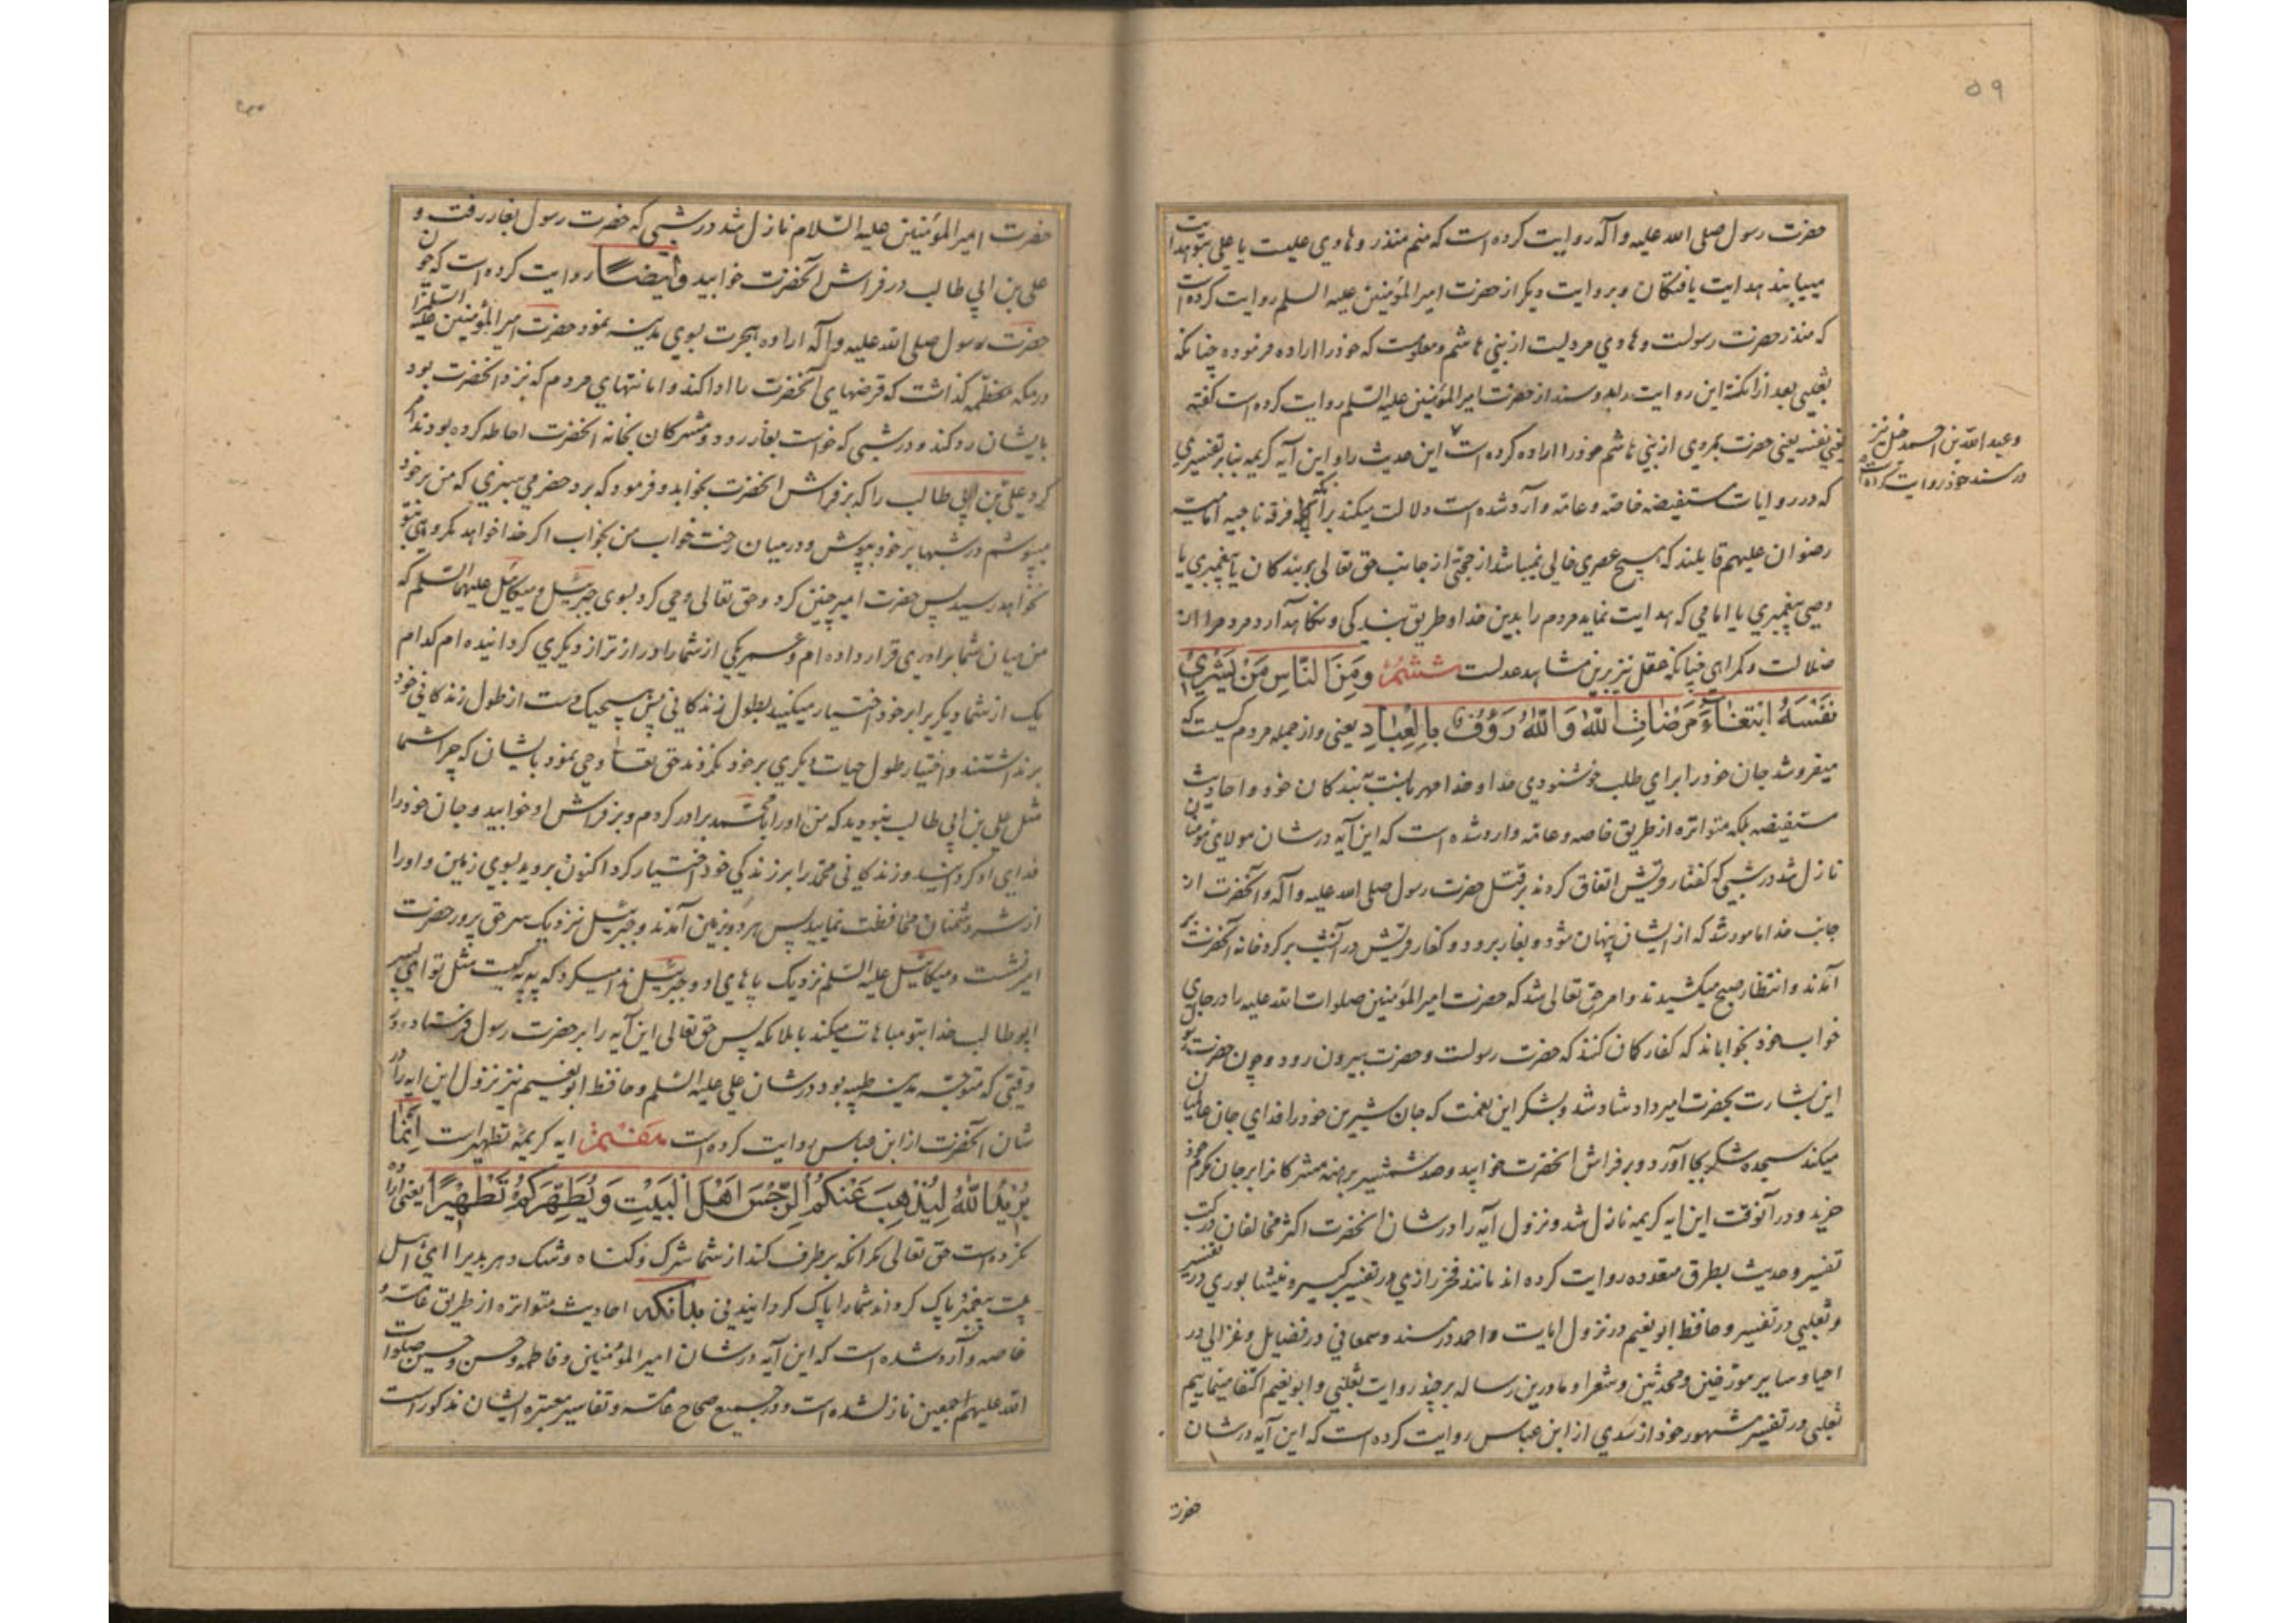 ۵۹
حضرت رسول صلی الله علیه وآله روایت کرده است که منم منذر و هادی علیست یا علی بتو هدایت
مییابند هدایت یافتکان و بروایت دیکر از حضرت امیرالمؤمنین علیه السلم روایت کرده است
که منذر حضرت رسولست و هادی مردیست از بنی هاشم و معلومست که خود را اراده فرموده چنانکه
ثعلبی بعد از انکه این روایت را بدو سند از حضرت امیرالمؤمنین علیه السلم روایت کرده است کفته
یعنی نفسه یعنی حضرت بمردی از بنی هاشم خود را اراده کرده است این حدیث را و این آیه کریمه بنابر تفسیری
وعبد الله بن احمد حنبل نیز
در مسند خود روایت کرده است
که در روایات مستفیضه خاصه و عامه وارد شده است دلالت میکند بر آنکه فرقه ناجیه امامیه
رضوان علیهم قایلند که هیچ عصری خالی نمیباشد از حجتی از جانب حق تعالی بر بندکان یا پیغمبری یا
وصی پیغمبری یا امامی که هدایت نماید مردم را بدین خدا و طریق بندکی و نکاهدارد مردم را از
ضلالت و کمراهی چنانکه عقل نیز برین شاهد عدلست ششم وَمِنَ النَّاسِ مَنْ يَشْرِي
نَفْسَهُ ابْتِغَاءَ مَرْضَاتِ اللهِ وَاللهُ رَؤُفٌ بِالْعِبَادِ یعنی و از جمله مردم کسیست که
میفروشد جان خود را برای طلب خوشنودی خدا و خدا مهربانست به بندکان خود و احادیث
مستفیضه بلکه متواتره از طریق خاصه و عامه وارد شده است که این آیه در شان مولای مؤمنان
نازل شد در شبی که کفار قریش اتفاق کردند بر قتل حضرت رسول صلی الله علیه وآله و آنحضرت از
جانب خدا مامور شد که از ایشان پنهان شود و بغار برود و کفار قریش در آنشب بر کرد خانه آنحضرت بر
آمدند و انتظار صبح میکشیدند و امر حق تعالی شد که حضرت امیرالمؤمنین صلوات الله علیه را در جای
خواب خود بخواباند که کفار کمان کنند که حضرت رسولست و حضرت بیرون رود و چون حضرت رسول
این بشارت بحضرت امیر داد شاد شد و بشکر این نعمت که جان شیرین خود را فدای جان عالمیان
میکند سجده شکر بجا آورد و بر فراش آنحضرت خوابید و صد شمشیر برهنه مشرکانرا بر جان مکرم خود
خرید و در آنوقت این ایه کریمه نازل شد و نزول آیه را در شان آنحضرت اکثر مخالفان در کتب
تفسیر و حدیث بطرق متعدده روایت کرده اند مانند فخر رازی در تفسیر کبیر و نیشابوری در تفسیر
و ثعلبی در تفسیر و حافظ ابو نعیم در نزول ایات و احمد در مسند و سمعانی در فضایل و غزالی در
احیا و سایر مورخین و محدثین و شعرا و ما درین رساله بر چند روایت ثعلبی و ابو نعیم اکتفا مینماییم
ثعلبی در تفسیر مشهور خود از سدی از ابن عباس روایت کرده است که این آیه در شان
حضرت
حضرت امیرالمؤمنین علیه السلام نازل شد در شبی که حضرت رسول بغار رفت و
علی بن ابی طالب در فراش آنحضرت خوابید وایضاً روایت کرده است که چون
حضرت رسول صلی الله علیه وآله اراده هجرت بسوی مدینه نمود حضرت امیرالمؤمنین علیه السلم را
در مکه معظمه کذاشت که قرضهای آنحضرت را ادا کند و امانتهای مردم که نزد آنحضرت بود
بایشان رد کند و در شبی که خواست بغار رود و مشرکان بخانه آنحضرت احاطه کرده بودند امر
کرد علی بن ابی طالب را که بر فراش آنحضرت بخوابد و فرمود که برد حضرمی سبزی که من بر خود
میپوشم در شبها بر خود بپوش و در میان رخت خواب من بخواب اکر خدا خواهد مکروهی بتو
نخواهد رسید پس حضرت امیر چنین کرد و حق تعالی وحی کرد بسوی جبرئیل و میکائیل علیهما السلم که
من میان شما برادری قرار داده ام و عمر یکی از شما را دراز تر از دیکری کردانیده ام کدام
یک از شما دیکری برا بر خود اختیار میکنید بطول زندکانی پس هیچیک دست از طول زندکانی خود
برنداشتند و اختیار طول حیات دیکری بر خود نکردند حق تعالی وحی نمود بایشان که چرا شما
مثل علی بن ابی طالب نبودید که من او را با محمد برادر کردم و بر فراش او خوابید و جان خود را
فدای او کردانید و زندکانی محمد را بر زندکی خود اختیار کرد اکنون بروید بسوی زمین و او را
از شر دشمنان محافظت نمایید پس هر دو بزمین آمدند و جبرئیل نزدیک سر حق پرور حضرت
امیر نشست و میکائیل علیه السلم نزدیک پاهای او و جبرئیل ندا میکرد که به به کیست مثل تو ای پسر
ابو طالب خدا بتو مباهات میکند با ملائکه پس حق تعالی این آیه را بر حضرت رسول فرستاد در
وقتی که متوجه مدینه طیبه بود در شان علی علیه السلم و حافظ ابو نعیم نیز نزول این ایه را در
شان آنحضرت از ابن عباس روایت کرده است هفتم ایه کریمه تطهیر است إِنَّمَا
يُرِيدُ اللهُ لِيُذْهِبَ عَنْكُمُ الرِّجْسَ أَهْلَ الْبَيْتِ وَيُطَهِّرَكُمْ تَطْهِيرًا یعنی اراده
نکرده است حق تعالی مکر آنکه برطرف کند از شما شرک و کناه و شک و هر بدیرا ای اهل
بیت پیغمبر و پاک کرداند شما را پاک کردانیدنی بدانکه احادیث متواتره از طریق عامه و
خاصه وارد شده است که این آیه در شان امیرالمؤمنین و فاطمه و حسن و حسین صلوات
الله علیهم اجمعین نازل شده است و در جمیع صحاح عامه و تفاسیر معتبره ایشان مذکور است